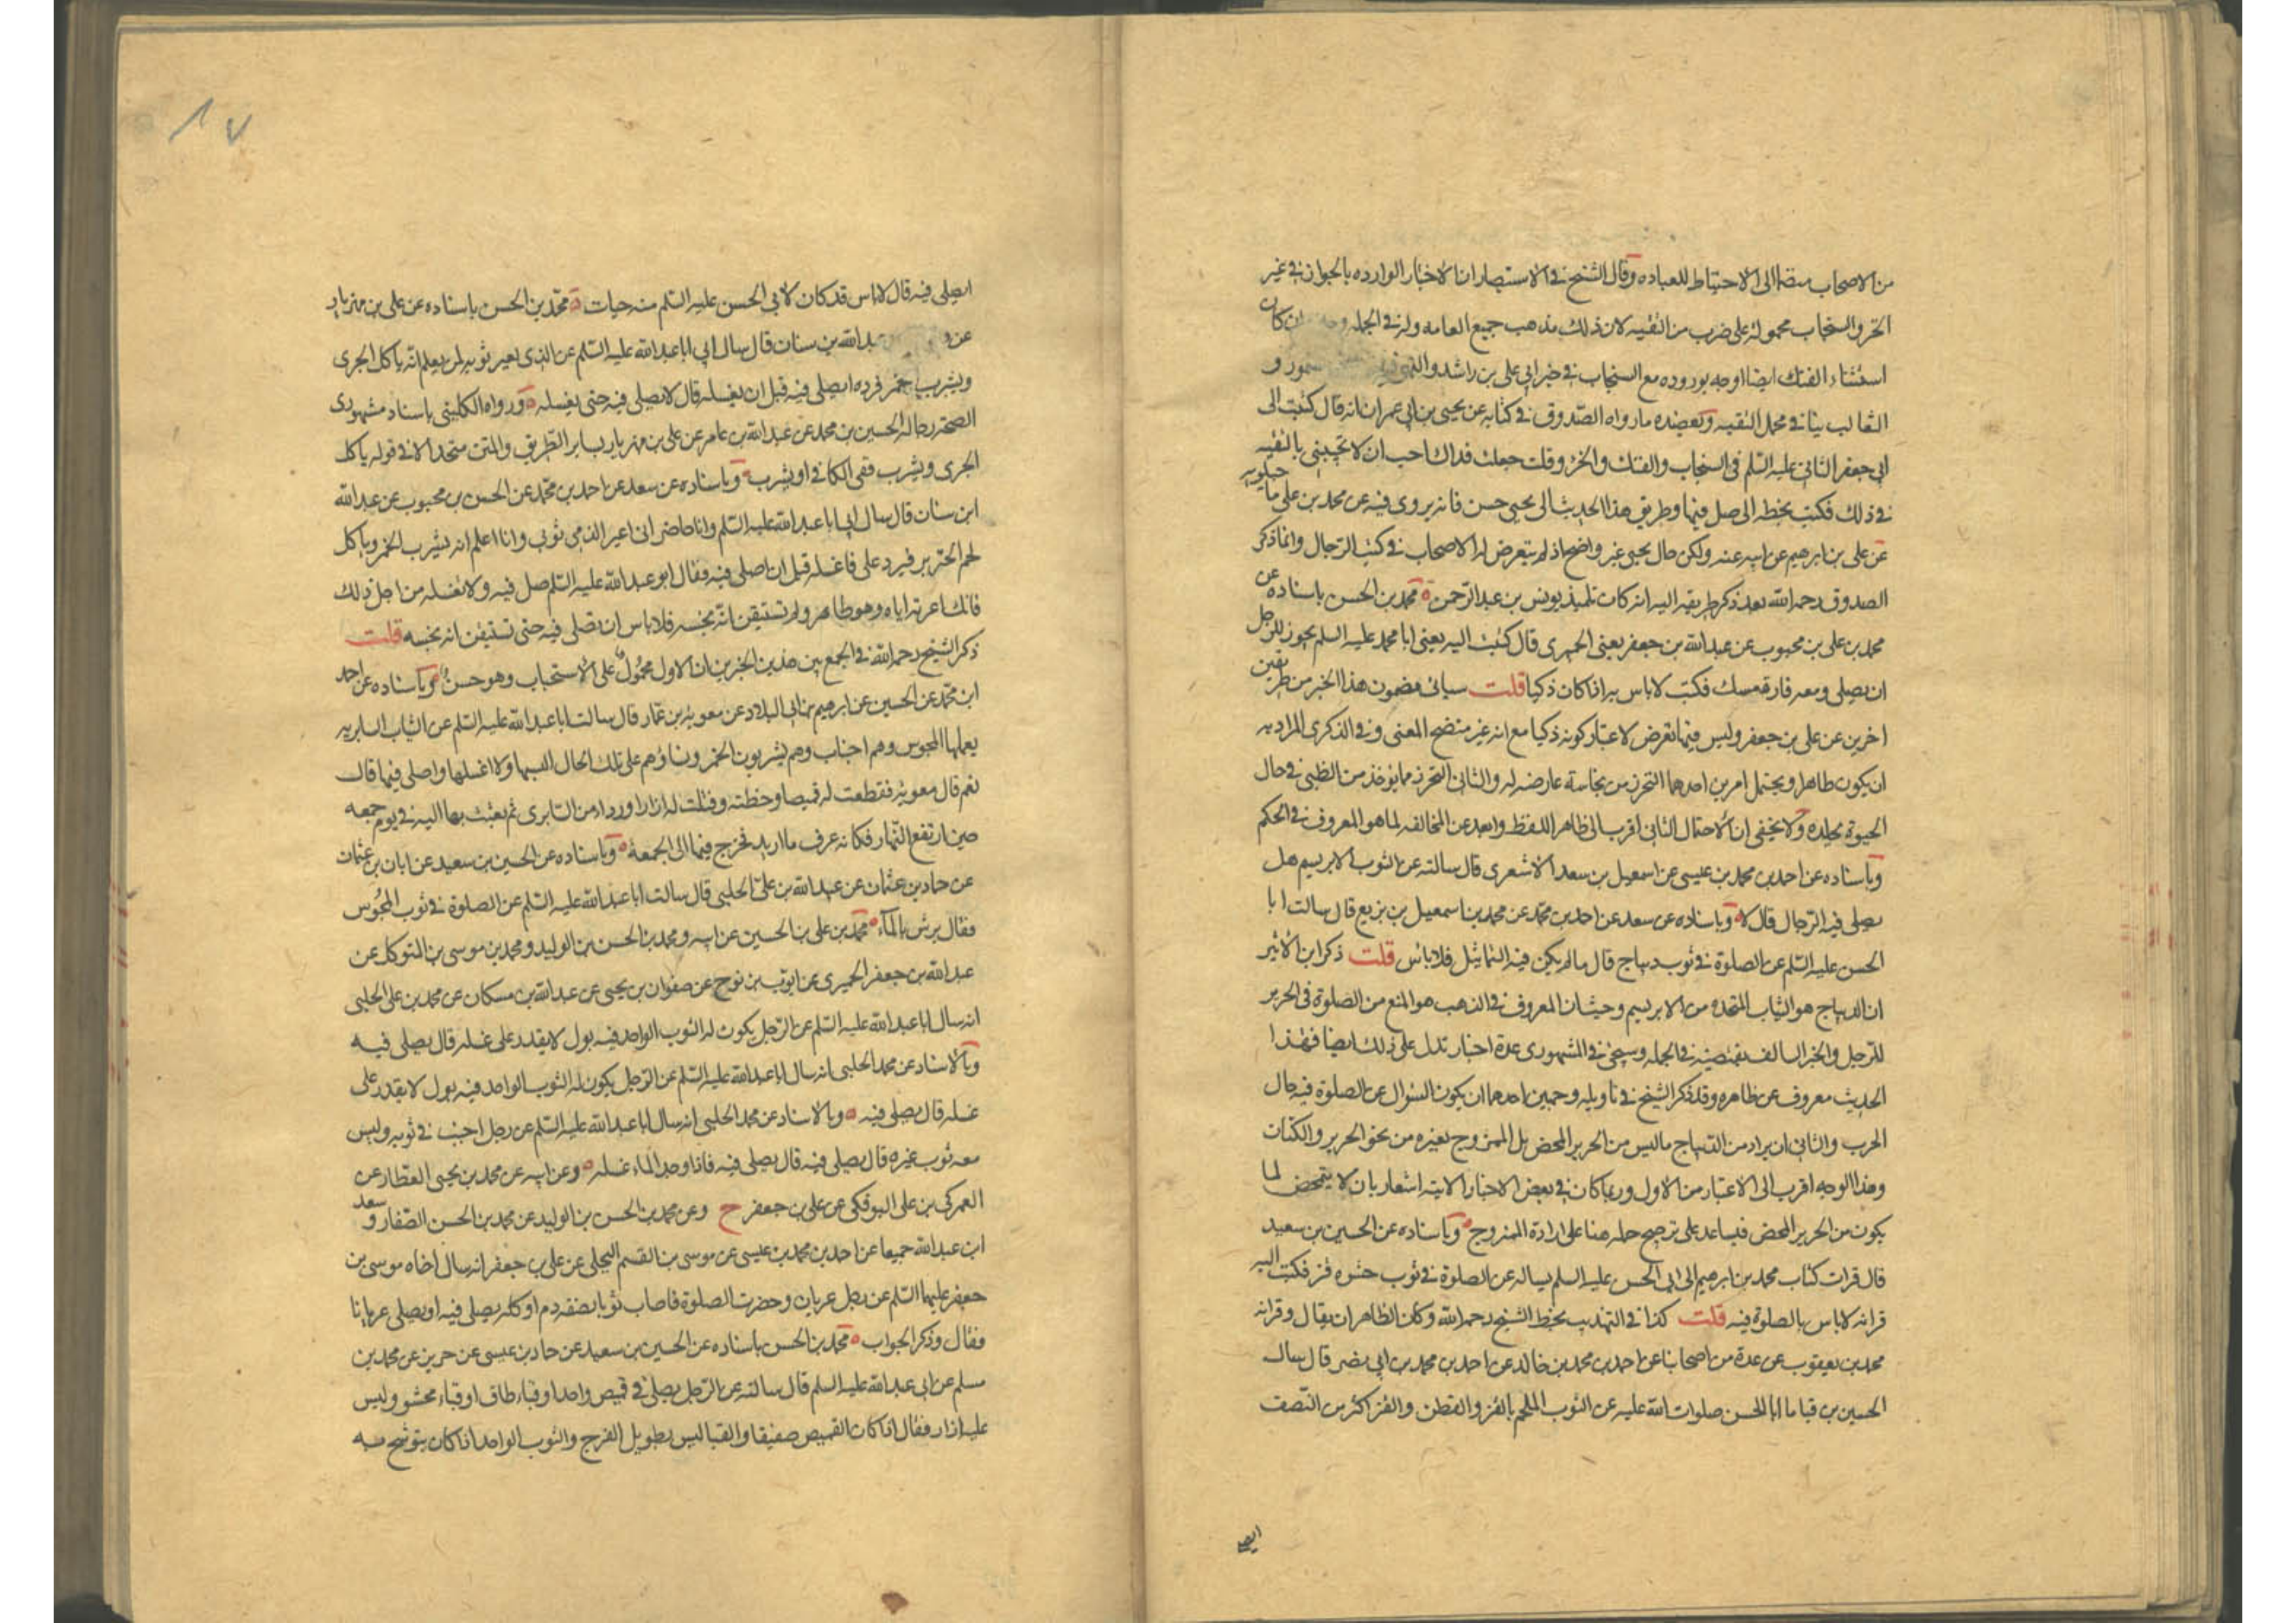 من الاصحاب مضافا الى الاحتياط للعباده وقال الشيخ في الاستبصار ان الاخبار الوارده بالجواز في غير
الخز والسنجاب محموله على ضرب من التقيه لان ذلك مذهب جميع العامه وله في الجمله وجه ان كان
استثناء الفنك ايضا اوجه بوروده مع السنجاب في خبر ابي علي بن راشد والسمور و
الثعالب ينافي محمل التقيه وتعضده ما رواه الصدوق في كتابه عن يحيى بن ابي عمران انه قال كتبت الى
ابي جعفر الثاني عليه السلم في السنجاب والفنك والخز وقلت جعلت فداك احب ان لا تجيبني بالتقيه
في ذلك فكتب بخطه الي صل فيها وطريق هذا الحديث الى يحيى حسن فانه يروى فيه عن محمد بن علي ماجيلويه
عن علي بن ابرهيم عن ابيه عنه ولكن حال يحيى غير واضح اذ لم يتعرض له الاصحاب في كتب الرجال وانما ذكر
الصدوق رحمه الله بعد ذكر طريقه اليه انه كان تلميذ يونس بن عبد الرحمن ه محمد بن الحسن باسناده عن
محمد بن علي بن محبوب عن عبد الله بن جعفر يعني الحميرى قال كتبت اليه يعني ابا محمد عليه السلم يجوز للرجل
ان يصلى ومعه فارة مسك فكتب لا باس به اذا كان ذكيا قلت سياتى مضمون هذا الخبر من طريقين
اخرين عن علي بن جعفر وليس فيهما تعرض لاعتبار كونه ذكيا مع انه غير متضح المعنى وفي الذكرى المراد به
ان يكون طاهرا ويحتمل امرين احدهما التحرز من نجاسة عارضه له والثاني التحرز مما يؤخذ من الظبي في حال
الحيوة بجلده ولا يخفى ان الاحتمال الثاني اقرب الى ظاهر اللفظ وابعد عن المخالفه لما هو المعروف في الحكم
وباسناده عن احمد بن محمد بن عيسى عن اسمعيل بن سعد الاشعرى قال سالته عن الثوب الابريسم هل
يصلى فيه الرجال قال لا ه وباسناده عن سعد عن احمد بن محمد عن محمد بن اسمعيل بن بزيع قال سالت ابا
الحسن عليه السلم عن الصلوة في ثوب ديباج قال ما لم يكن فيه التماثيل فلا باس قلت ذكر ابن الاثير
ان الديباج هو الثياب المتخذه من الابريسم وحيث ان المعروف في المذهب هو المنع من الصلوة في الحرير
للرجل والخبر السالف يقتضيه في الجمله وسيجئ في المشهورى عدة اخبار تدل على ذلك ايضا فهذا
الحديث معروف عن ظاهره وقد ذكر الشيخ في تاويله وجهين احدهما ان يكون السؤال عن الصلوة فيه حال
الحرب والثاني ان يراد من الديباج ما ليس من الحرير المحض بل الممزوج بغيره من نحو الحرير والكتان
وهذا الوجه اقرب الى الاعتبار من الاول وربما كان في بعض الاخبار الاتيه اشعار بان لا يتمحض لما
يكون من الحرير المحض فيساعد على ترجيح حمله هنا على ارادة الممزوج ه وباسناده عن الحسين بن سعيد
قال قرات كتاب محمد بن ابرهيم الى ابي الحسن عليه السلم يساله عن الصلوة في ثوب حشوه قز فكتب اليه
قرانه لا باس بالصلوة فيه قلت كذا في التهذيب بخط الشيخ رحمه الله وكان الظاهر ان يقال وقرانه
محمد بن يعقوب عن عدة من اصحابنا عن احمد بن محمد بن خالد عن احمد بن محمد بن ابي نصر قال سال
الحسين بن قياما ابا الحسن صلوات الله عليه عن الثوب الملحم بالقز والقطن والقز اكثر من النصف
ايصلى
١٧
ايصلى فيه قال لا باس قد كان لابي الحسن عليه السلم منه جبات ه محمد بن الحسن باسناده عن علي بن مهزيار
عن عبد الله بن سنان قال سال ابي ابا عبد الله عليه السلم عن الذى يعير ثوبه لمن يعلم انه ياكل الجرى
ويشرب الخمر فرده ايصلى فيه قبل ان يغسله قال لا يصلى فيه حتى يغسله ه ورواه الكليني باسناد مشهورى
الصحة رجاله الحسين بن محمد عن عبد الله بن عامر عن علي بن مهزيار بساير الطريق والمتن متحد الا في قوله ياكل
الجرى ويشرب ففى الكافي او يشرب ه وباسناده عن سعد عن احمد بن محمد عن الحسن بن محبوب عن عبد الله
ابن سنان قال سال ابي ابا عبد الله عليه السلم وانا حاضر انى اعير الذمى ثوبى وانا اعلم انه يشرب الخمر وياكل
لحم الخنزير فيرد على فاغسله قبل ان اصلى فيه فقال ابو عبد الله عليه السلم صل فيه ولا تغسله من اجل ذلك
فانك اعرته اياه وهو طاهر ولم تستيقن انه نجسه فلا باس ان تصلى فيه حتى تستيقن انه نجسه قلت
ذكر الشيخ رحمه الله في الجمع بين هذين الخبرين ان الاول محمول على الاستحباب وهو حسن ه وباسناده عن احمد
ابن محمد عن الحسين عن ابرهيم بن ابي البلاد عن معويه بن عمار قال سالت ابا عبد الله عليه السلم عن الثياب السابريه
يعملها المجوس وهم اجناب وهم يشربون الخمر ونساؤهم على تلك الحال البسها ولا اغسلها واصلى فيها قال
نعم قال معويه فقطعت له قميصا وخطته وفتلت له ازرارا ورداء من السابرى ثم بعثت بها اليه في يوم جمعه
حين ارتفع النهار فكانه عرف ما اريد فخرج فيها الى الجمعة ه وباسناده عن الحسين بن سعيد عن ابان بن عثمان
عن حماد بن عثمان عن عبد الله بن علي الحلبى قال سالت ابا عبد الله عليه السلم عن الصلوة في ثوب المجوس
فقال يرش بالماء ه محمد بن علي بن الحسين عن ابيه ومحمد بن الحسن بن الوليد ومحمد بن موسى بن المتوكل عن
عبد الله بن جعفر الحميرى عن ايوب بن نوح عن صفوان بن يحيى عن عبد الله بن مسكان عن محمد بن علي الحلبى
انه سال ابا عبد الله عليه السلم عن الرجل يكون له الثوب الواحد فيه بول لا يقدر على غسله قال يصلى فيه
وبالاسناد عن محمد الحلبى انه سال ابا عبد الله عليه السلم عن الرجل يكون له الثوب الواحد فيه بول لا يقدر على
غسله قال يصلى فيه ه وبالاسناد عن محمد الحلبى انه سال ابا عبد الله عليه السلم عن رجل اجنب في ثوبه وليس
معه ثوب غيره قال يصلى فيه قال يصلى فيه فاذا وجد الماء غسله ه وعن ابيه عن محمد بن يحيى العطار عن
العمركى بن علي البوفكى عن علي بن جعفر ح وعن محمد بن الحسن بن الوليد عن محمد بن الحسن الصفار وسعد
ابن عبد الله جميعا عن احمد بن محمد بن عيسى عن موسى بن القسم البجلى عن علي بن جعفر انه سال اخاه موسى بن
جعفر عليهما السلم عن رجل عريان وحضرت الصلوة فاصاب ثوبا نصفه دم او كله يصلى فيه او يصلى عريانا
فقال وذكر الجواب ه محمد بن الحسن باسناده عن الحسين بن سعيد عن حماد بن عيسى عن حريز عن محمد بن
مسلم عن ابى عبد الله عليه السلم قال سالته عن الرجل يصلى في قميص واحد او قباء طاق او قباء محشو وليس
عليه ازار فقال اذا كان القميص صفيقا والقبا ليس بطويل الفرج والثوب الواحد اذا كان يتوشح به